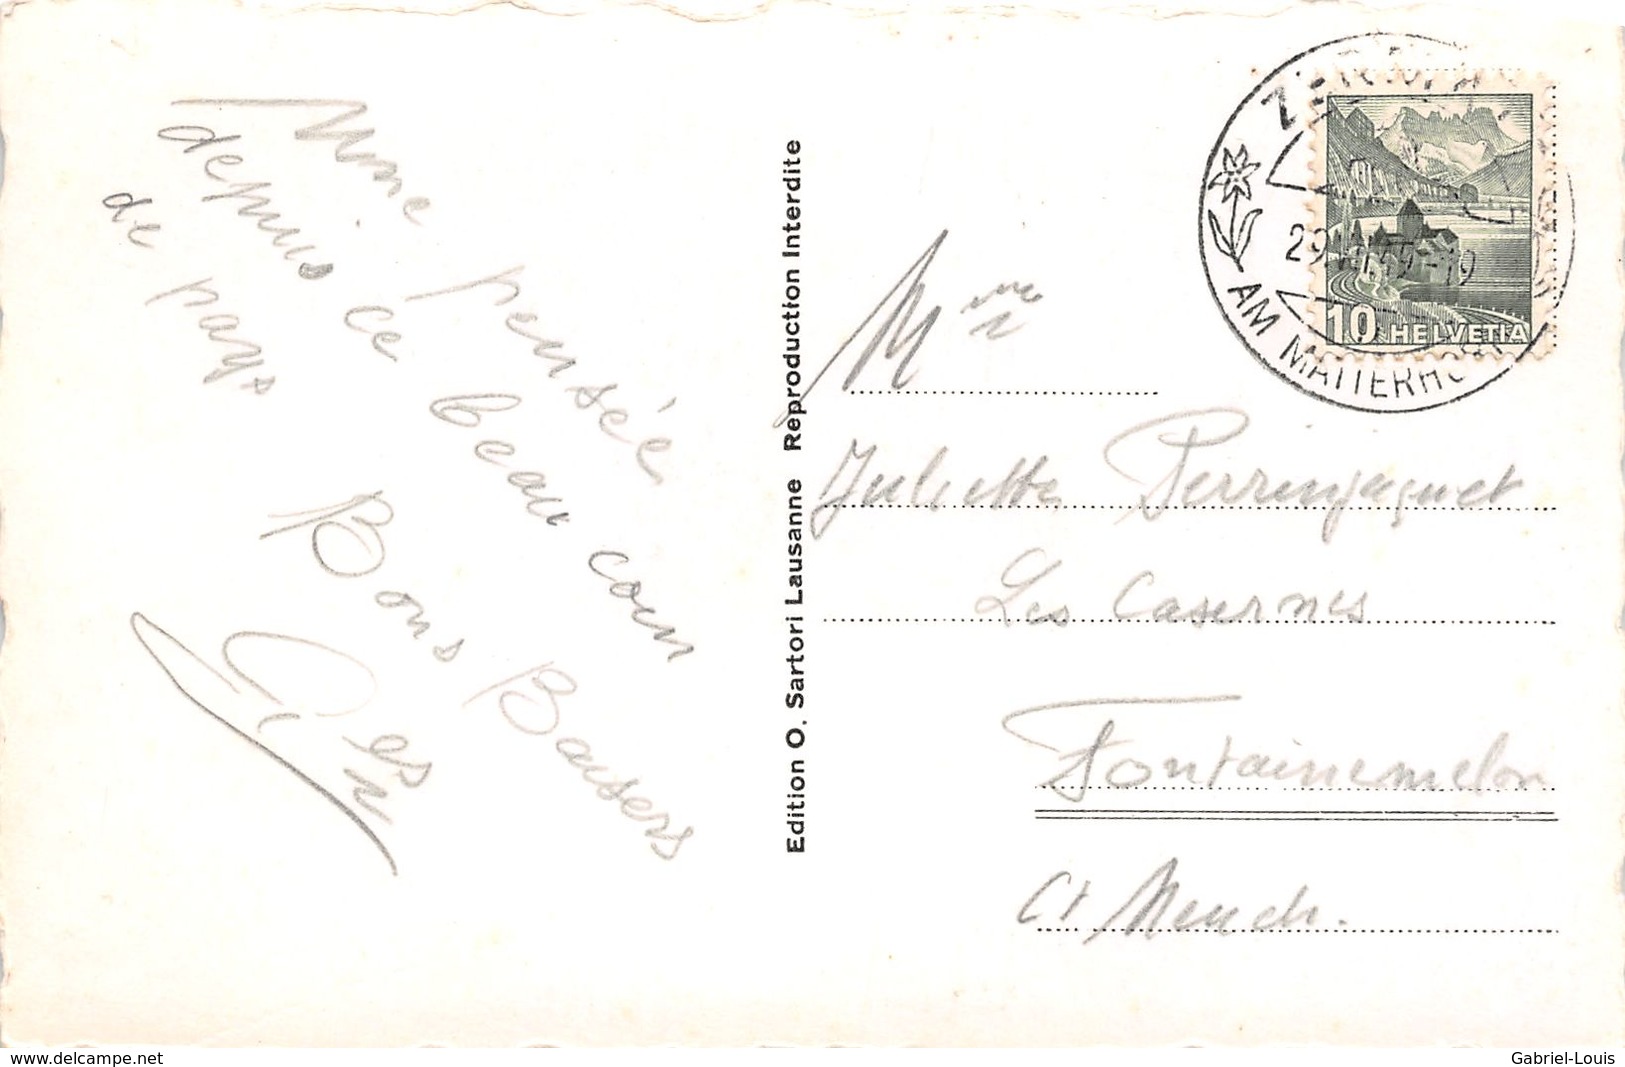 Une pensée
depuis ce beau coin
de pays
Bons Baisers
Edition O. Sartori Lausanne Reproduction Interdite
AM MATTERHO
10 HELVETIA
Mme
Juliette Perrinjaquet
Les Casernes
Fontainemelon
Ct Neuch.
delcampe.net
Gabriel-Louis